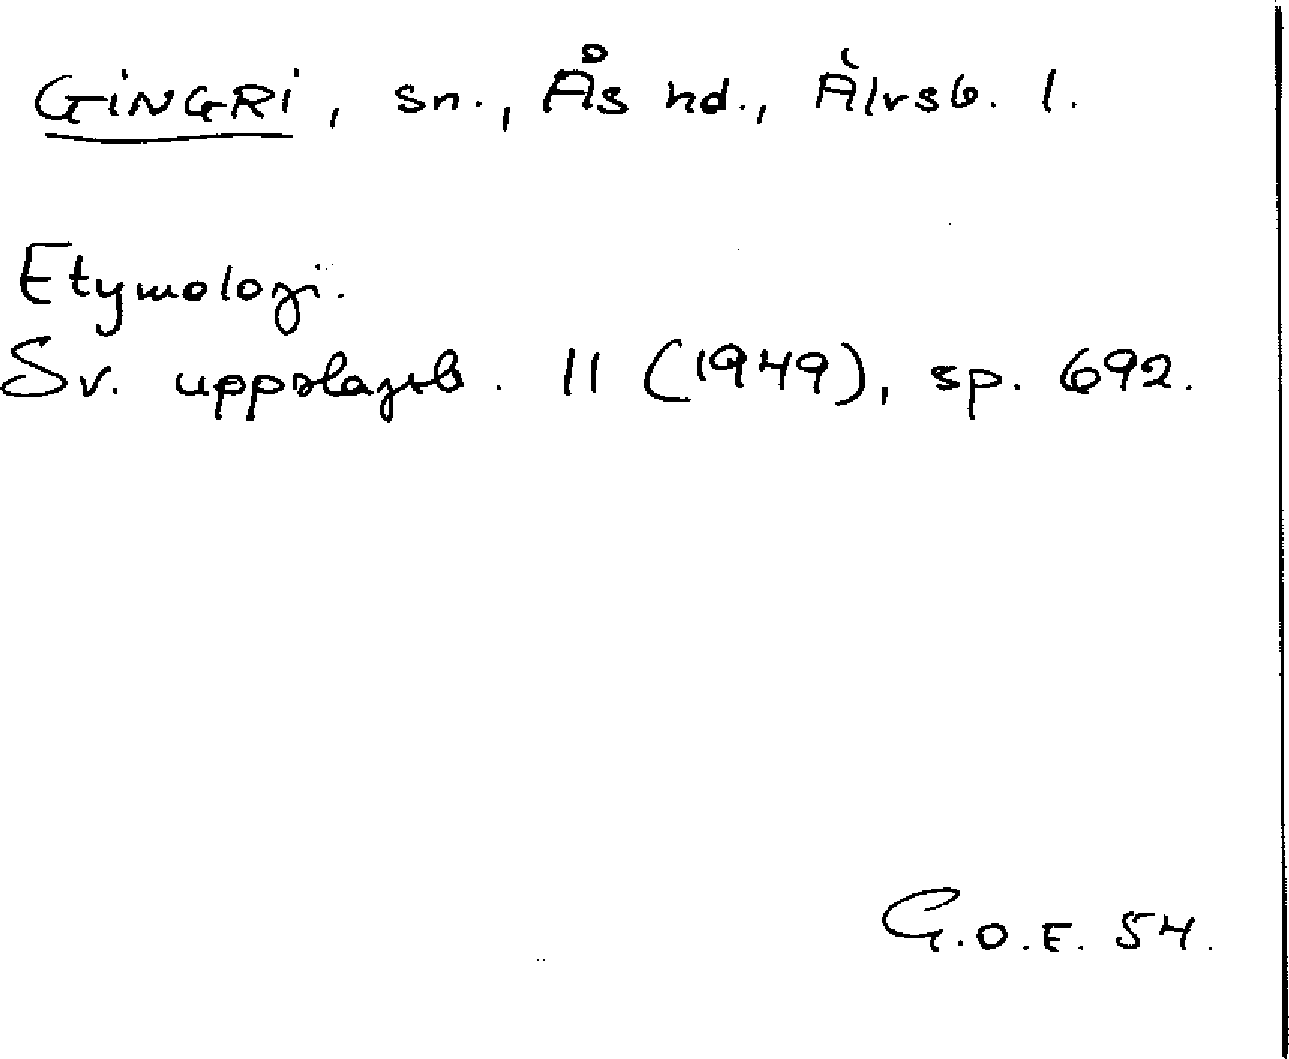 GINGRI, sn., Ås hd., Älvsb. l.
Etymologi.
Sv. uppslagsb. II (1949), sp. 692.
G.O.E. 54.